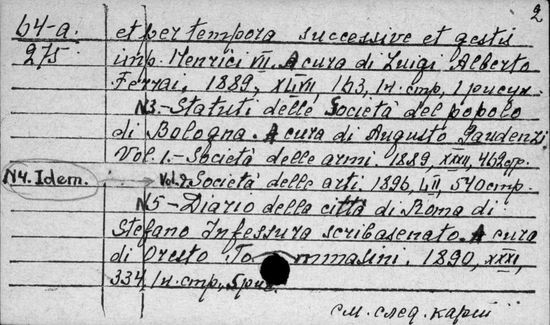 2
64-a. et per tempora successive et gestis
275 imp. Henrici VII. A cura di Luigi Alberto
Ferrai, 1889, XLVII, 163, 1 н. стр, 1 рисун.
N3.-Statuti delle Società del popolo
di Bologna. A cura di Augusto Gaudenzi
Vol. 1.-Società delle armi. 1889, XXXII, 462 стр.
N4. Idem. Vol. 2. Società delle arti. 1896, LII, 540 стр.
N5-Diario della città di Roma di
Stefano Infessura scribasenato. A cura
di Oresto Tommasini. 1890, XXXI,
334, 1 н. стр., 5 рис.
см. след. карт.